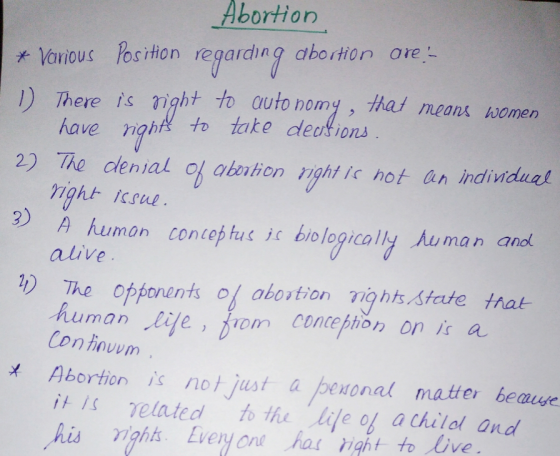 Abortion
* Various Position regarding abortion are:-
1) There is right to autonomy, that means women
have rights to take decisions.
2) The denial of abortion right is not an individual
right issue.
3) A human conceptus is biologically human and
alive.
4) The opponents of abortion rights state that
human life, from conception on is a
Continuum.
* Abortion is not just a personal matter because
it is related to the life of a child and
his rights. Everyone has right to live.